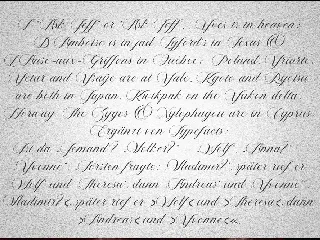 “Ask Jeff” or ‘Ask Jeff’. Yves is in heaven;
D’Amboise is in jail. Lyford’s in Texas &
L’Anse-aux-Griffons in Québec; Poland. Yriarte,
Yciar and Ysaÿe are at Yale. Kyoto and Ryotsu
are both in Japan, Kwikpak on the Yukon delta,
Norway. The Zyger & Xylophagou are in Cyprus
Ergänzt von Typefacts:
Ist da Jemand? Volker?“ — „Wolf, Anna?
„Yvonne“, Torsten fragte; Vladimir?‘, später rief er
„Wolf und Theresa; dann „Andreas“ und „Yvonne“
Vladimir?‹, später rief er »Wolf« und »Theresa«, dann
»Andreas« und »Yvonne«.